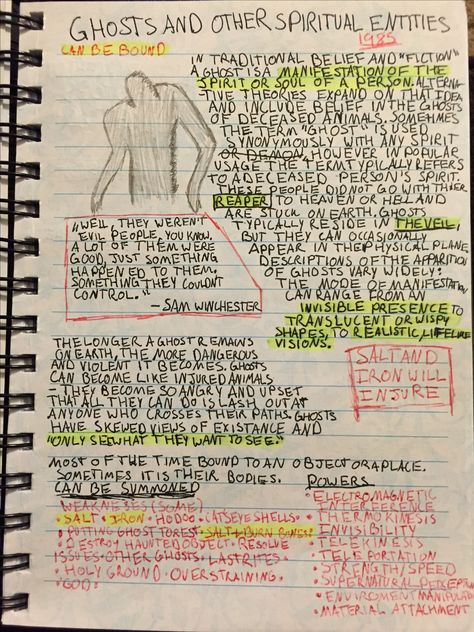 GHOSTS AND OTHER SPIRITUAL ENTITIES
1985
CAN BE BOUND
IN TRADITIONAL BELIEF AND "FICTION"
A GHOST IS A MANIFESTATION OF THE
SPIRIT OR SOUL OF A PERSON. ALTERNA-
TIVE THEORIES EXPAND ON THAT IDEA
AND INCLUDE BELIEF IN THE GHOSTS
OF DECEASED ANIMALS. SOMETIMES
THE TERM "GHOST" IS USED
SYNONYMOUSLY WITH ANY SPIRIT
OR DEMON, HOWEVER IN POPULAR
USAGE THE TERM TYPICALLY REFERS
TO A DECEASED PERSON'S SPIRIT.
THESE PEOPLE DID NOT GO WITH THIER
REAPER TO HEAVEN OR HELL AND
ARE STUCK ON EARTH. GHOSTS
TYPICALLY RESIDE IN THE VEIL,
BUT THEY CAN OCCASIONALLY
APPEAR IN THE PHYSICAL PLANE,
DESCRIPTIONS OF THE APPARITION
OF GHOSTS VARY WIDELY:
THE MODE OF MANIFESTATION
CAN RANGE FROM AN
INVISIBLE PRESENCE TO
TRANSLUCENT OR WISPY
SHAPES, TO REALISTIC, LIFELIKE
VISIONS.
"WELL, THEY WEREN'T
EVIL PEOPLE, YOU KNOW.
A LOT OF THEM WERE
GOOD, JUST SOMETHING
HAPPENED TO THEM.
SOMETHING THEY COULDNT
CONTROL."
- SAM WINCHESTER
SALT AND
IRON WILL
INJURE
THE LONGER A GHOST REMAINS
ON EARTH, THE MORE DANGEROUS
AND VIOLENT IT BECOMES. GHOSTS
CAN BECOME LIKE INJURED ANIMALS
THEY BECOME SO ANGRY AND UPSET
THAT ALL THEY CAN DO IS LASH OUT AT
ANYONE WHO CROSSES THEIR PATHS. GHOSTS
HAVE SKEWED VIEWS OF EXISTANCE AND
"ONLY SEE WHAT THEY WANT TO SEE."
MOST OF THE TIME BOUND TO AN OBJECT OR A PLACE.
SOMETIMES IT IS THEIR BODIES.
CAN BE SUMMONED
WEAKNESSES (SOME)
• SALT • IRON • HODOO • CATSEYE SHELLS •
• PUTTING GHOST TO REST • SALT & BURN BONES •
• DESTROY HAUNTED OBJECT • RESOLVE
ISSUES • OTHER GHOSTS • LAST RITES •
• HOLY GROUND • OVERSTRAINING •
• GOD •
POWERS
• ELECTROMAGNETIC
INTERFERENCE
• THERMOKINESIS
• INVISIBILITY
• TELEKINESIS
• TELEPORTATION
• STRENGTH/SPEED
• SUPERNATURAL PERCEPTION
• ENVIROMENT MANIPULATION
• MATERIAL ATTACHMENT